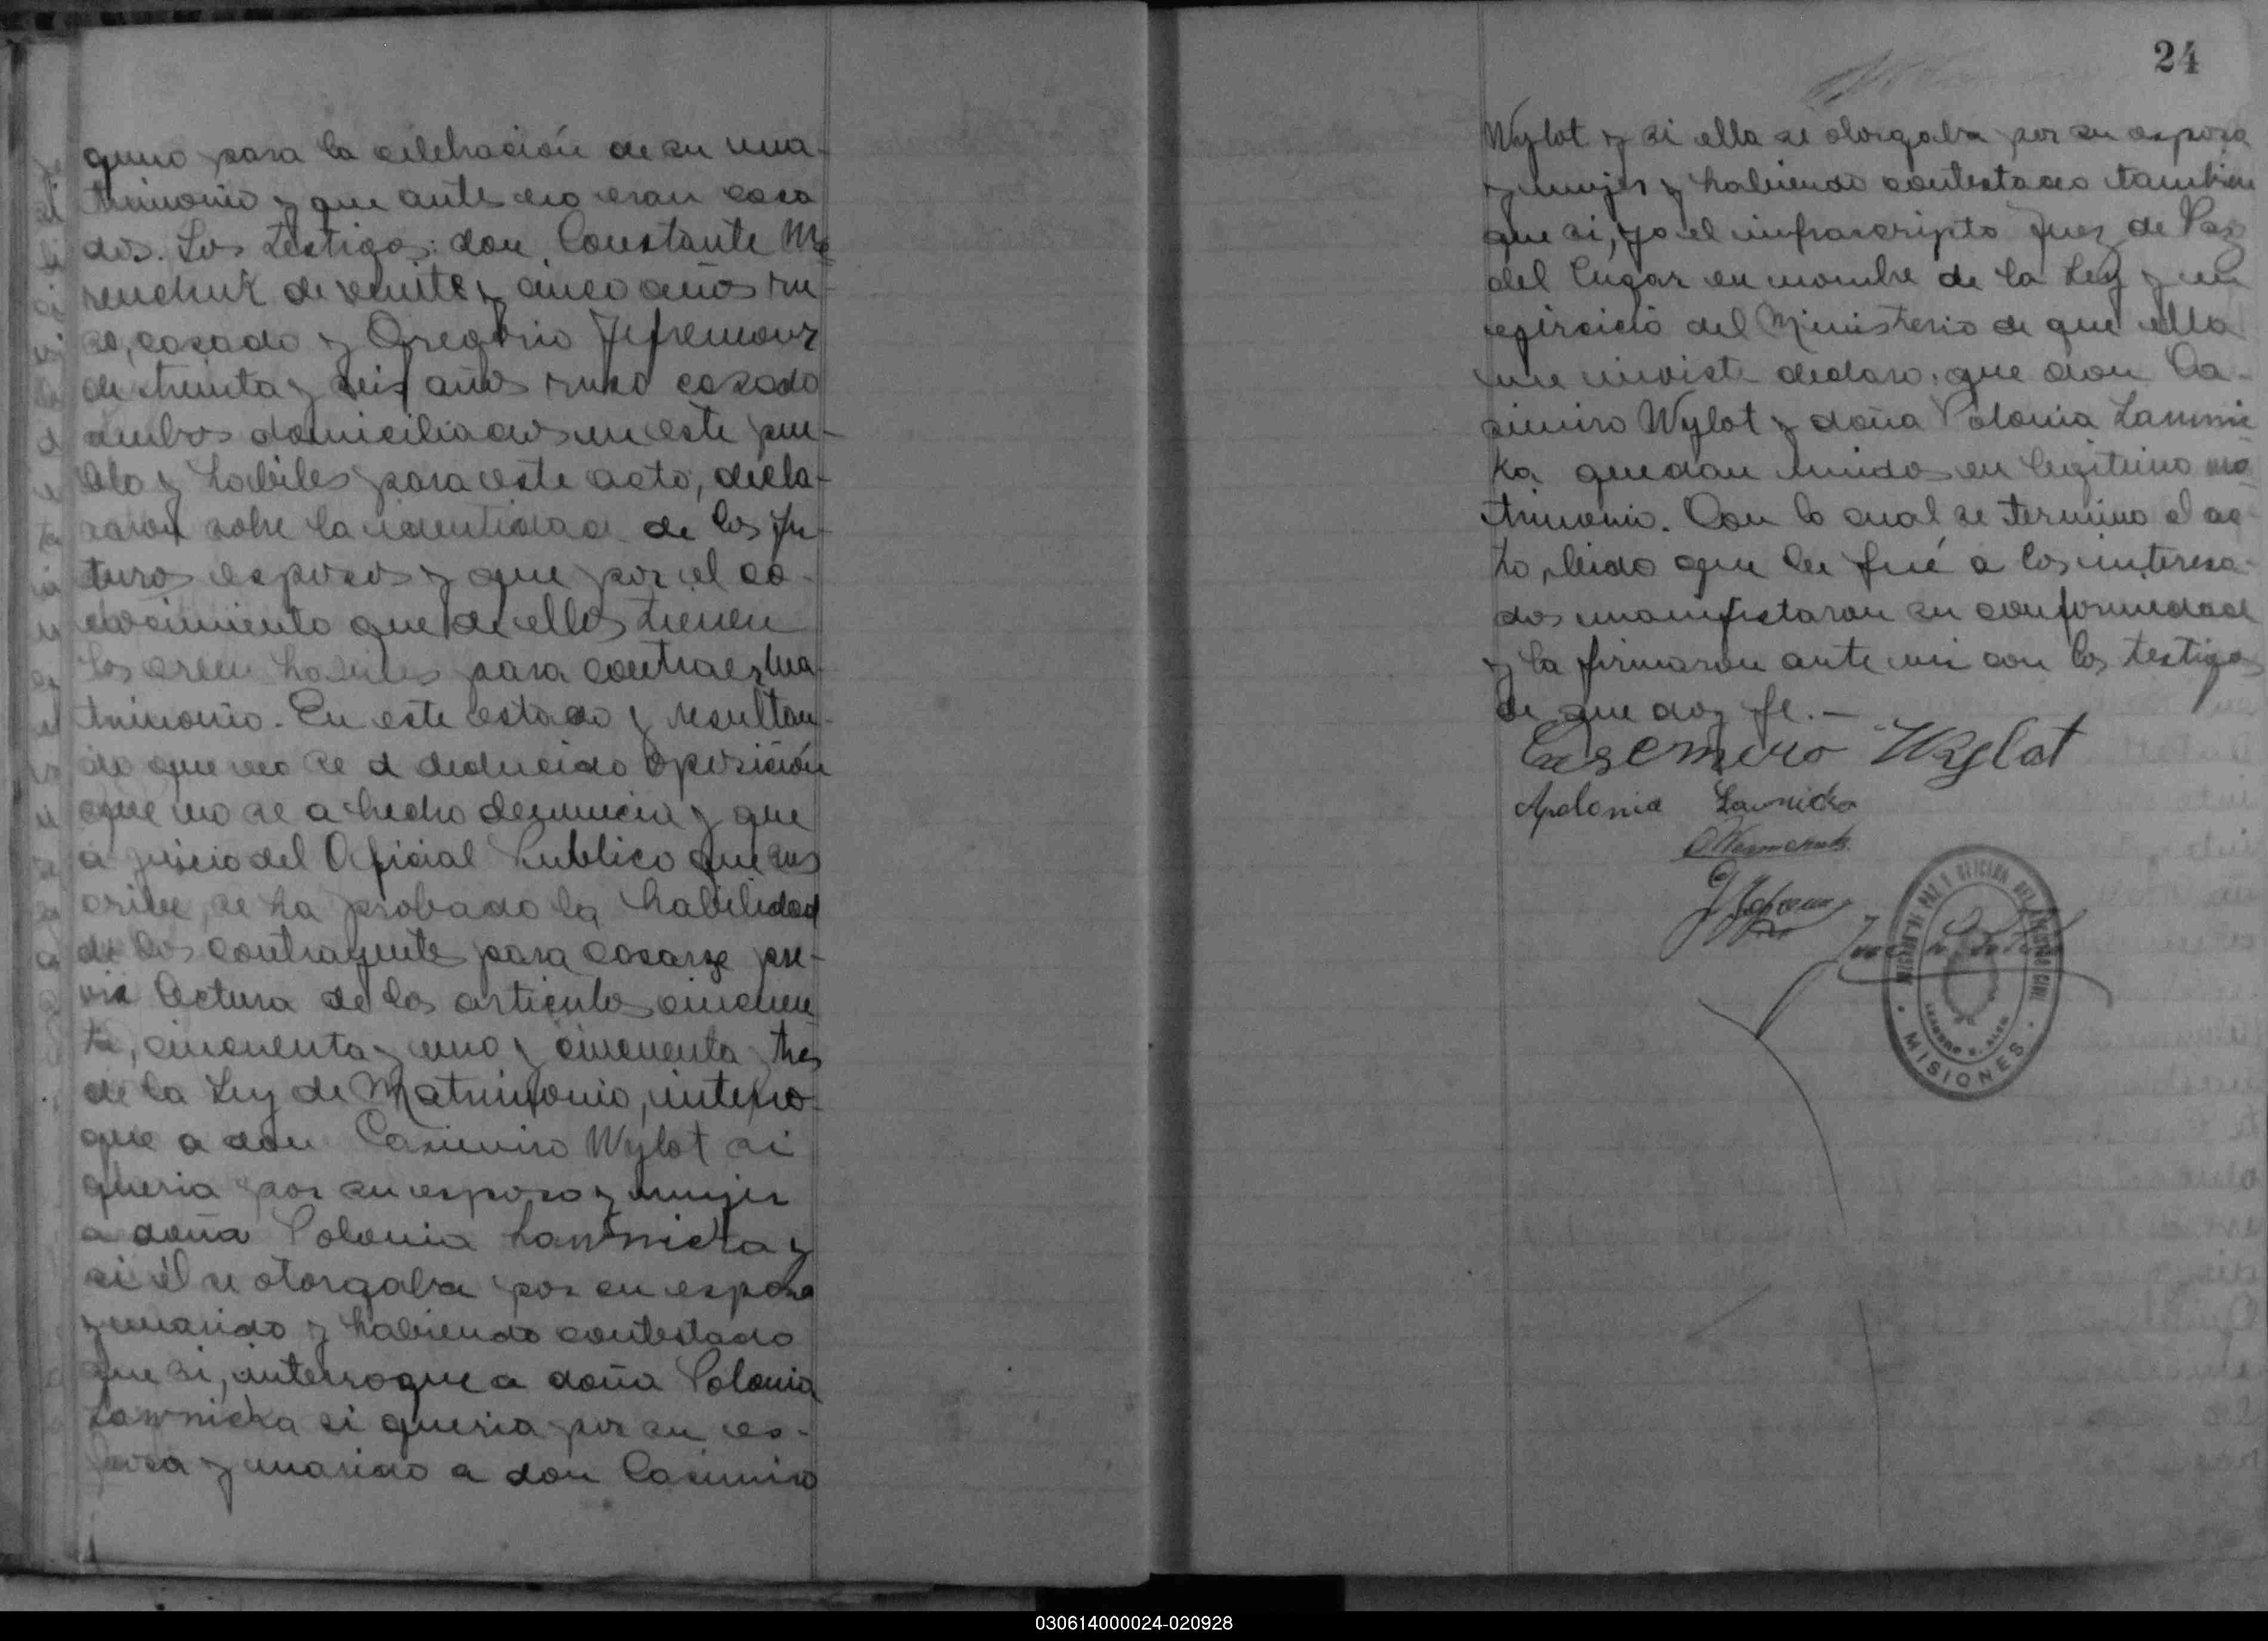 guno para la celebración de su ma-
trimonio y que antes no eran casa
dos. Los testigos: don Constante Me
renchuk de veinte y cinco años ru-
so, casado y Gregorio Jefremour
de treinta y seis años ruso casado
ambos domiciliados en este pue-
blo y habiles para este acto, decla-
raron sobre la identidad de los fu-
turos esposos y que por el co-
nocimiento que de ellos tienen
los creen habiles para contraer ma-
trimonio. En este estado y resultan-
do que no se a deducido oposición
que no se a hecho denuncia y que
a juicio del Oficial Publico que sus
cribe, se ha probado la habilidad
de los contrayente para casarse pre-
via lectura de los articulos cincuen
ta, cincuenta y uno y cincuenta y tres
de la Ley de Matrimonio, interro-
gue a don Casimiro Wylot si
queria por su esposa y mujer
a doña Polonia Lawnicka y
si él se otorgaba por su esposo
y marido y habiendo contestado
que si, interrogue a doña Polonia
Lawnicka si queria por su es-
poso y marido a don Casimiro
24
Wylot y si ella se otorgaba por su esposa
y mujer y habiendo contestado tambien
que si, yo el infrascripto Juez de Paz
del lugar en nombre de la Ley y en
ejercicio del Ministerio de que ella
me inviste declaro: que don Ca-
simiro Wylot y doña Polonia Lawnic
ka quedan unidos en legitimo ma
trimonio. Con lo cual se termino el ac-
to, leido que les fué a los interesa-
dos manifestaron su conformidad
y la firmaron ante mi con los testigos
de que doy fe.—
Casemiro Wylot
Apolonia Lawnicka
JUZGADO DE PAZ Y OFICINA DEL REGISTRO CIVIL
LEANDRO N. ALEM
MISIONES
030614000024-020928